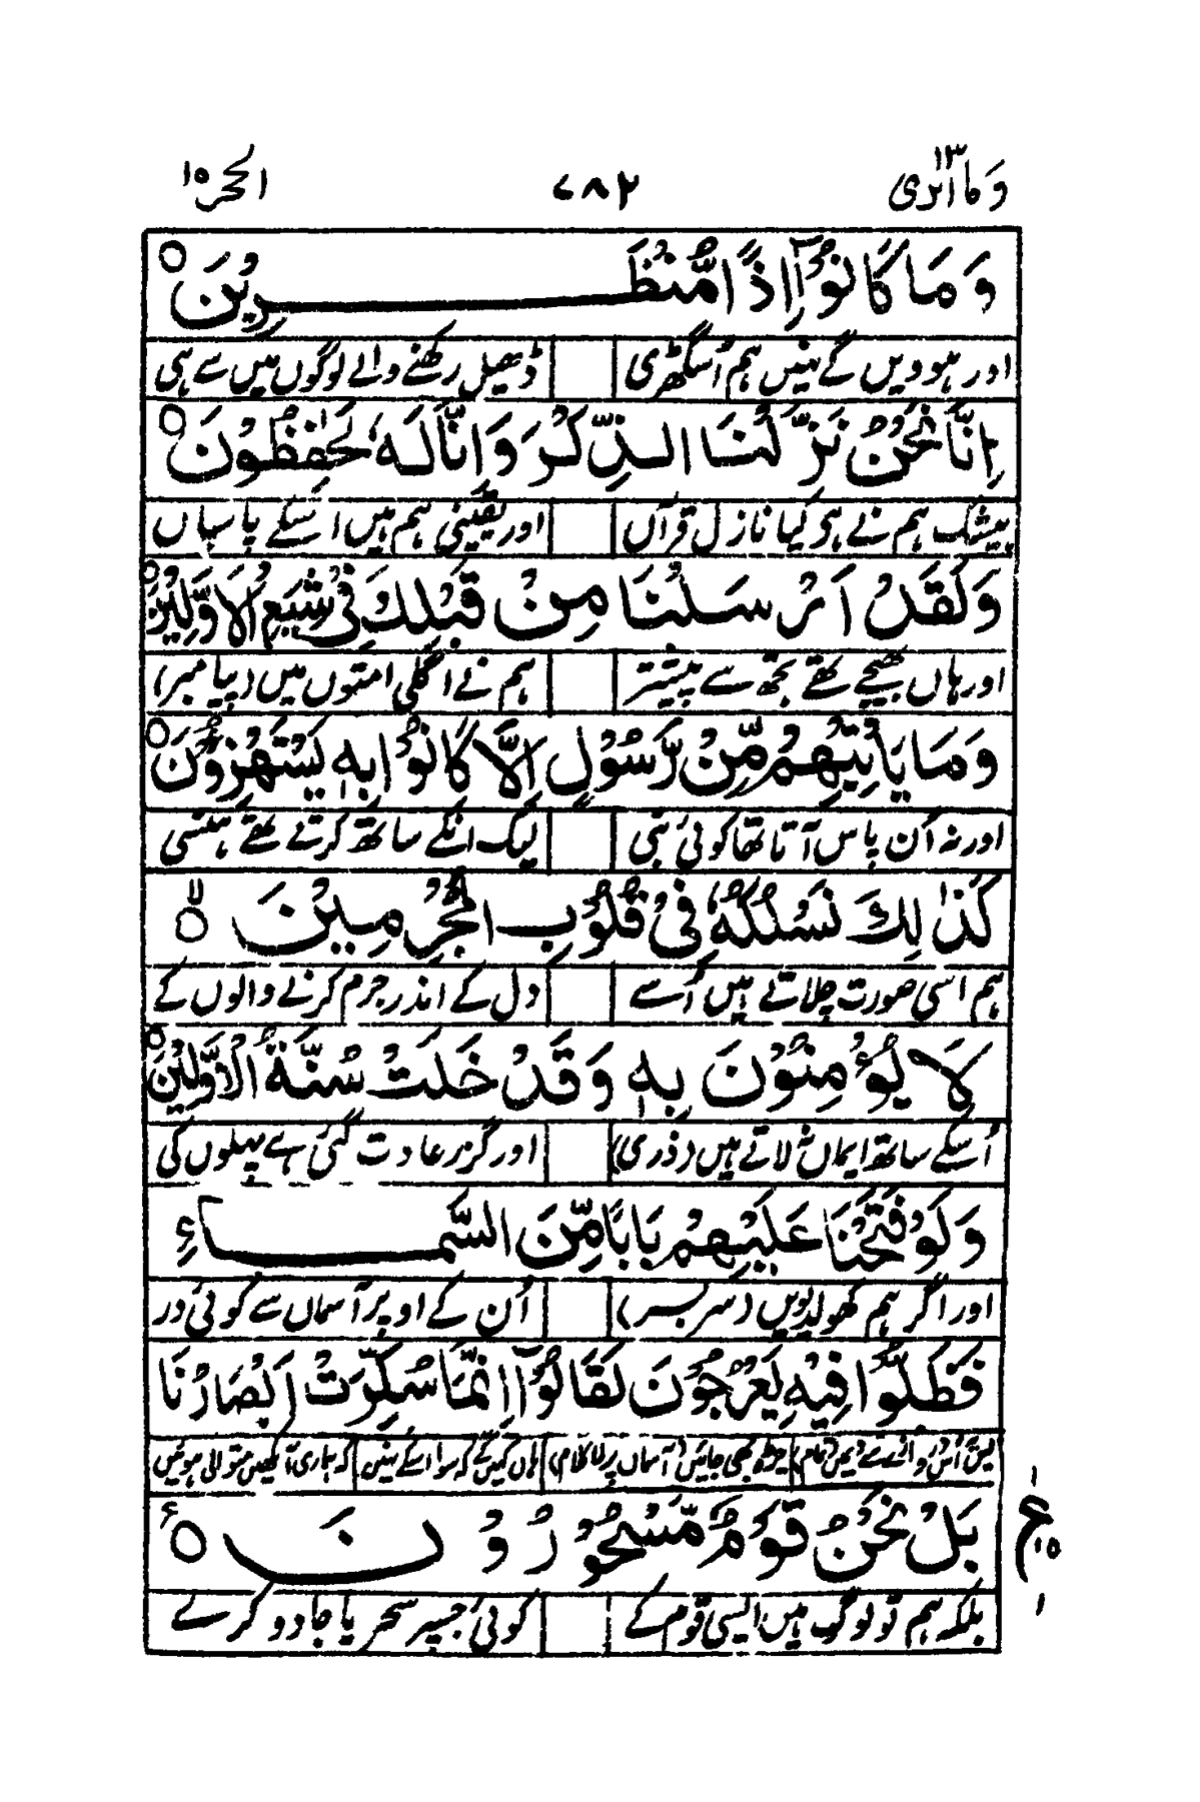 وما ابرئ ١٣ ٧٨٢ الحجر ١٥
وَمَا كَانُوْٓا اِذًا مُّنْظَرِيْنَ ۝
اور ہوویں گے نہیں ہم اُسگھڑی ڈھیل رکھنے والے لوگوں میں سے ہی
اِنَّا نَحْنُ نَزَّلْنَا الذِّكْرَ وَاِنَّا لَهٗ لَحٰفِظُوْنَ ۝
بیشک ہم نے ہی کیا نازل قرآں اور یقینی ہم ہیں اسکے پاسباں
وَلَقَدْ اَرْسَلْنَا مِنْ قَبْلِكَ فِيْ شِيَعِ الْاَوَّلِيْنَ ۝
اور ہاں بھیجے تھے تجھ سے پیشتر ہم نے اگلی امتوں میں (پیامبر)
وَمَا يَاْتِيْهِمْ مِّنْ رَّسُوْلٍ اِلَّا كَانُوْا بِهٖ يَسْتَهْزِءُوْنَ ۝
اور نہ اُن پاس آتا تھا کوئی نبی لیک انکے ساتھ کرتے تھے ہنسی
كَذٰلِكَ نَسْلُكُهٗ فِيْ قُلُوْبِ الْمُجْرِمِيْنَ ۝ۙ
ہم اسی صورت چلاتے ہیں اُسے دل کے اندر جرم کرنے والوں کے
لَا يُؤْمِنُوْنَ بِهٖ وَقَدْ خَلَتْ سُنَّةُ الْاَوَّلِيْنَ ۝
اُسکے ساتھ ایماں نہ لاتے ہیں (ذری) اور گزر عادت گئی ہے پہلوں کی
وَلَوْ فَتَحْنَا عَلَيْهِمْ بَابًا مِّنَ السَّمَآءِ
اور اگر ہم کھولدیویں (سربسر) اُن کے اوپر آسماں سے کوئی در
فَظَلُّوْا فِيْهِ يَعْرُجُوْنَ لَقَالُوْٓا اِنَّمَا سُكِّرَتْ اَبْصَارُنَا
چڑھ بھی جائیں آسماں پر لاکلام) ہاں کہیں گے کہ سوا اسکے نہیں کہ ہماری آنکھیں متوالی ہوئیں
بَلْ نَحْنُ قَوْمٌ مَّسْحُوْرُوْنَ ۝ع
بلکہ ہم تو لوگ ہیں ایسی قوم کے کوئی جسپر سحر یا جادو کرے
ع
١
١٥
١